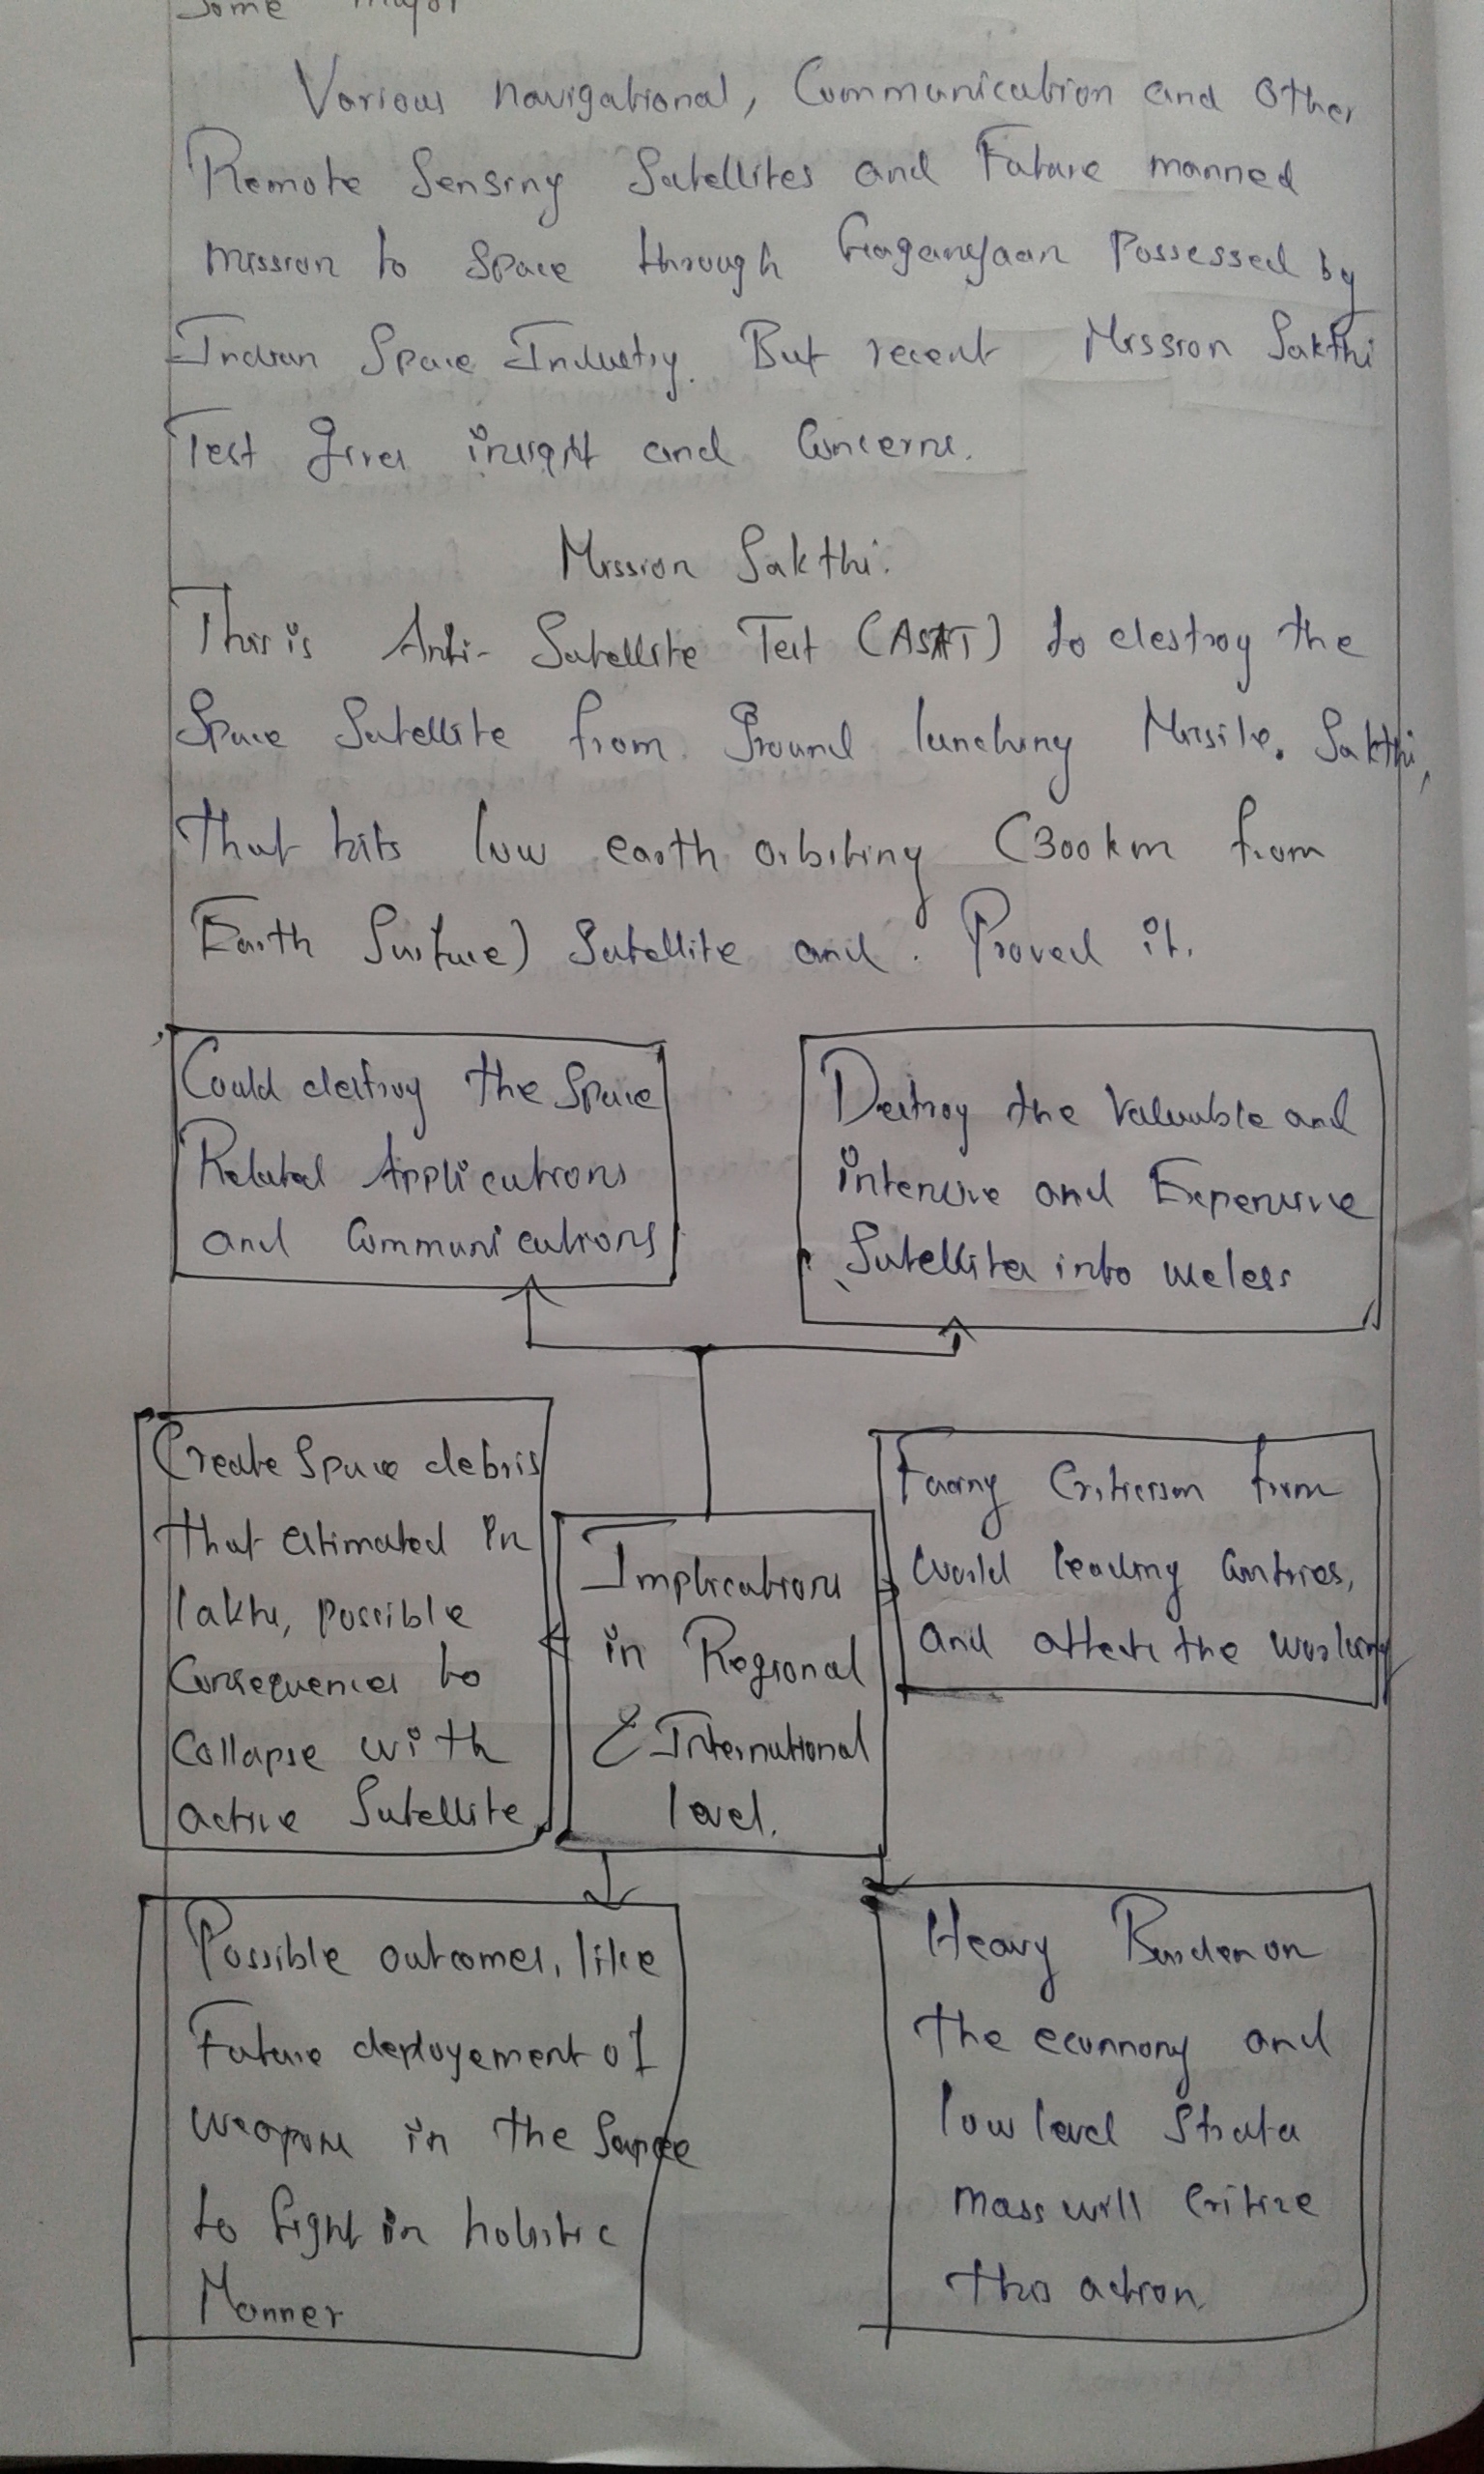 Some major
Various navigational, Communication and Other
Remote Sensing Satellites and Future manned
mission to Space through Gaganyaan Possessed by
Indian Space Industry. But recent Mission Sakthi
Test gives insight and Concerns.
Mission Sakthi.
This is Anti-Satellite Test (ASAT) to destroy the
Space Satellite from Ground lunching Missile. Sakthi,
that hits low earth orbiting (300km from
Earth Surface) Satellite and. Proved it.
Could destroy the Space
Related Applications
and Communications
Destroy the Valuable and
intensive and Expensive
Satellites into useless
Create Space debris
that estimated in
lakhs, possible
Consequences to
Collapse with
active Satellite
Implications
in Regional
& International
level.
Facing Criticism from
world leading Contries,
and affects the working
Possible outcomes, like
Future deployement of
weapons in the Sapce
to fight in holistic
Manner
Heavy Burden on
the econnomy and
low level Strata
mass will Critize
this action.